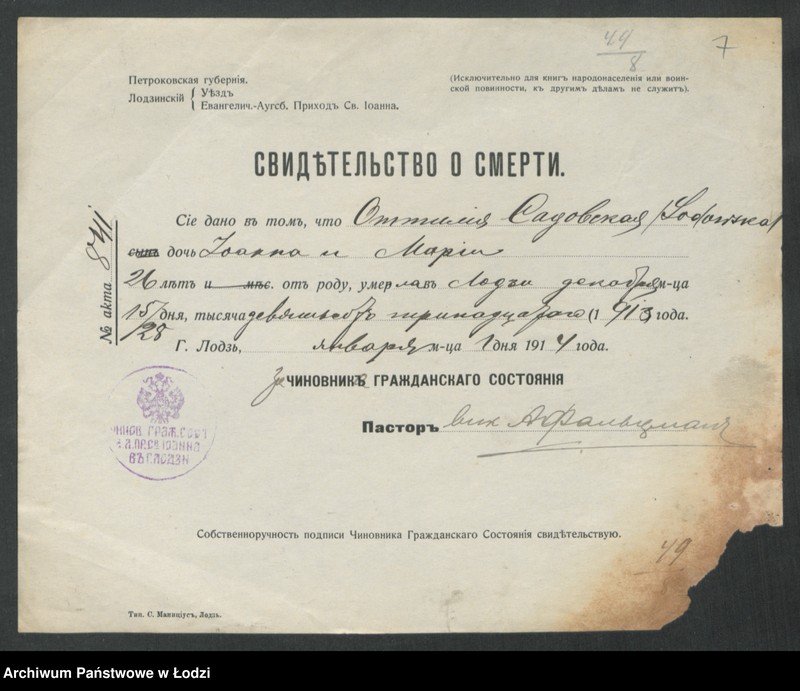 44
8
7
Петроковская губернія.
Лодзинскій { Уѣздъ
Евангелич.-Аугсб. Приходъ Св. Іоанна.
(Исключительно для книгъ народонаселенія или воин-
ской повинности, къ другимъ дѣламъ не служитъ).
СВИДѢТЕЛЬСТВО О СМЕРТИ.
№ акта 841
Сіе дано въ томъ, что Оттилія Садовская (Sadowska)
сынъ дочь Іоанна и Маріи
26 лѣтъ и мѣс. отъ роду, умерла въ Лодзи декабря м-ца
15/28 дня, тысяча девятьсотъ тринадцатаго (1913) года.
Г. Лодзь, января м-ца дня 1914 года.
за ЧИНОВНИКА ГРАЖДАНСКАГО СОСТОЯНІЯ
Пасторъ вик А Фальцманъ
ЧИНОВ. ГРАЖ. СОСТ
ВЪ Г. ЛОДЗИ
Собственноручность подписи Чиновника Гражданскаго Состоянія свидѣтельствую.
49
Тип. С. Маниціусъ, Лодзь.
Archiwum Państwowe w Łodzi